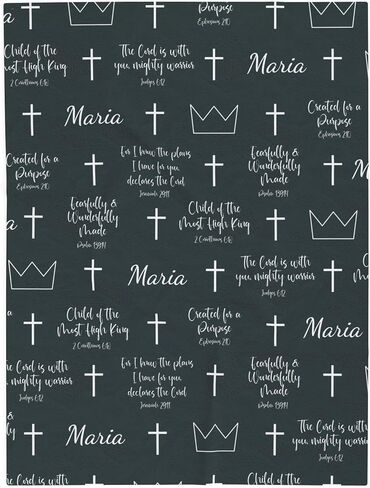 Purpose
Ephesians 2:10
Child of the
Most High King
2 Corinthians 6:18
The Lord is with
you, mighty warrior
Judges 6:12
Maria
Maria
Created for a
Purpose
Ephesians 2:10
Created for a
Purpose
Ephesians 2:10
For I know the plans
I have for you
declares the Lord
Jeremiah 29:11
Fearfully &
Wonderfully
Made
Psalm 139:14
M
a
Fearfully &
Wonderfully
Made
Psalm 139:14
Child of the
Most High King
2 Corinthians 6:18
Maria
The Lord is with
you, mighty warrior
Judges 6:12
Child of the
Most High King
2 Corinthians 6:18
Created for a
Purpose
Ephesians 2:10
Maria
Lord is with
mighty warrior
Judges 6:12
For I know the plans
I have for you
declares the Lord
Jeremiah 29:11
Fearfully &
Wonderfully
Made
Psalm 139:14
&
ly
Maria
The Lord is with
you, mighty warrior
Judges 6:12
Lord is with
mighty warrior
Child of the